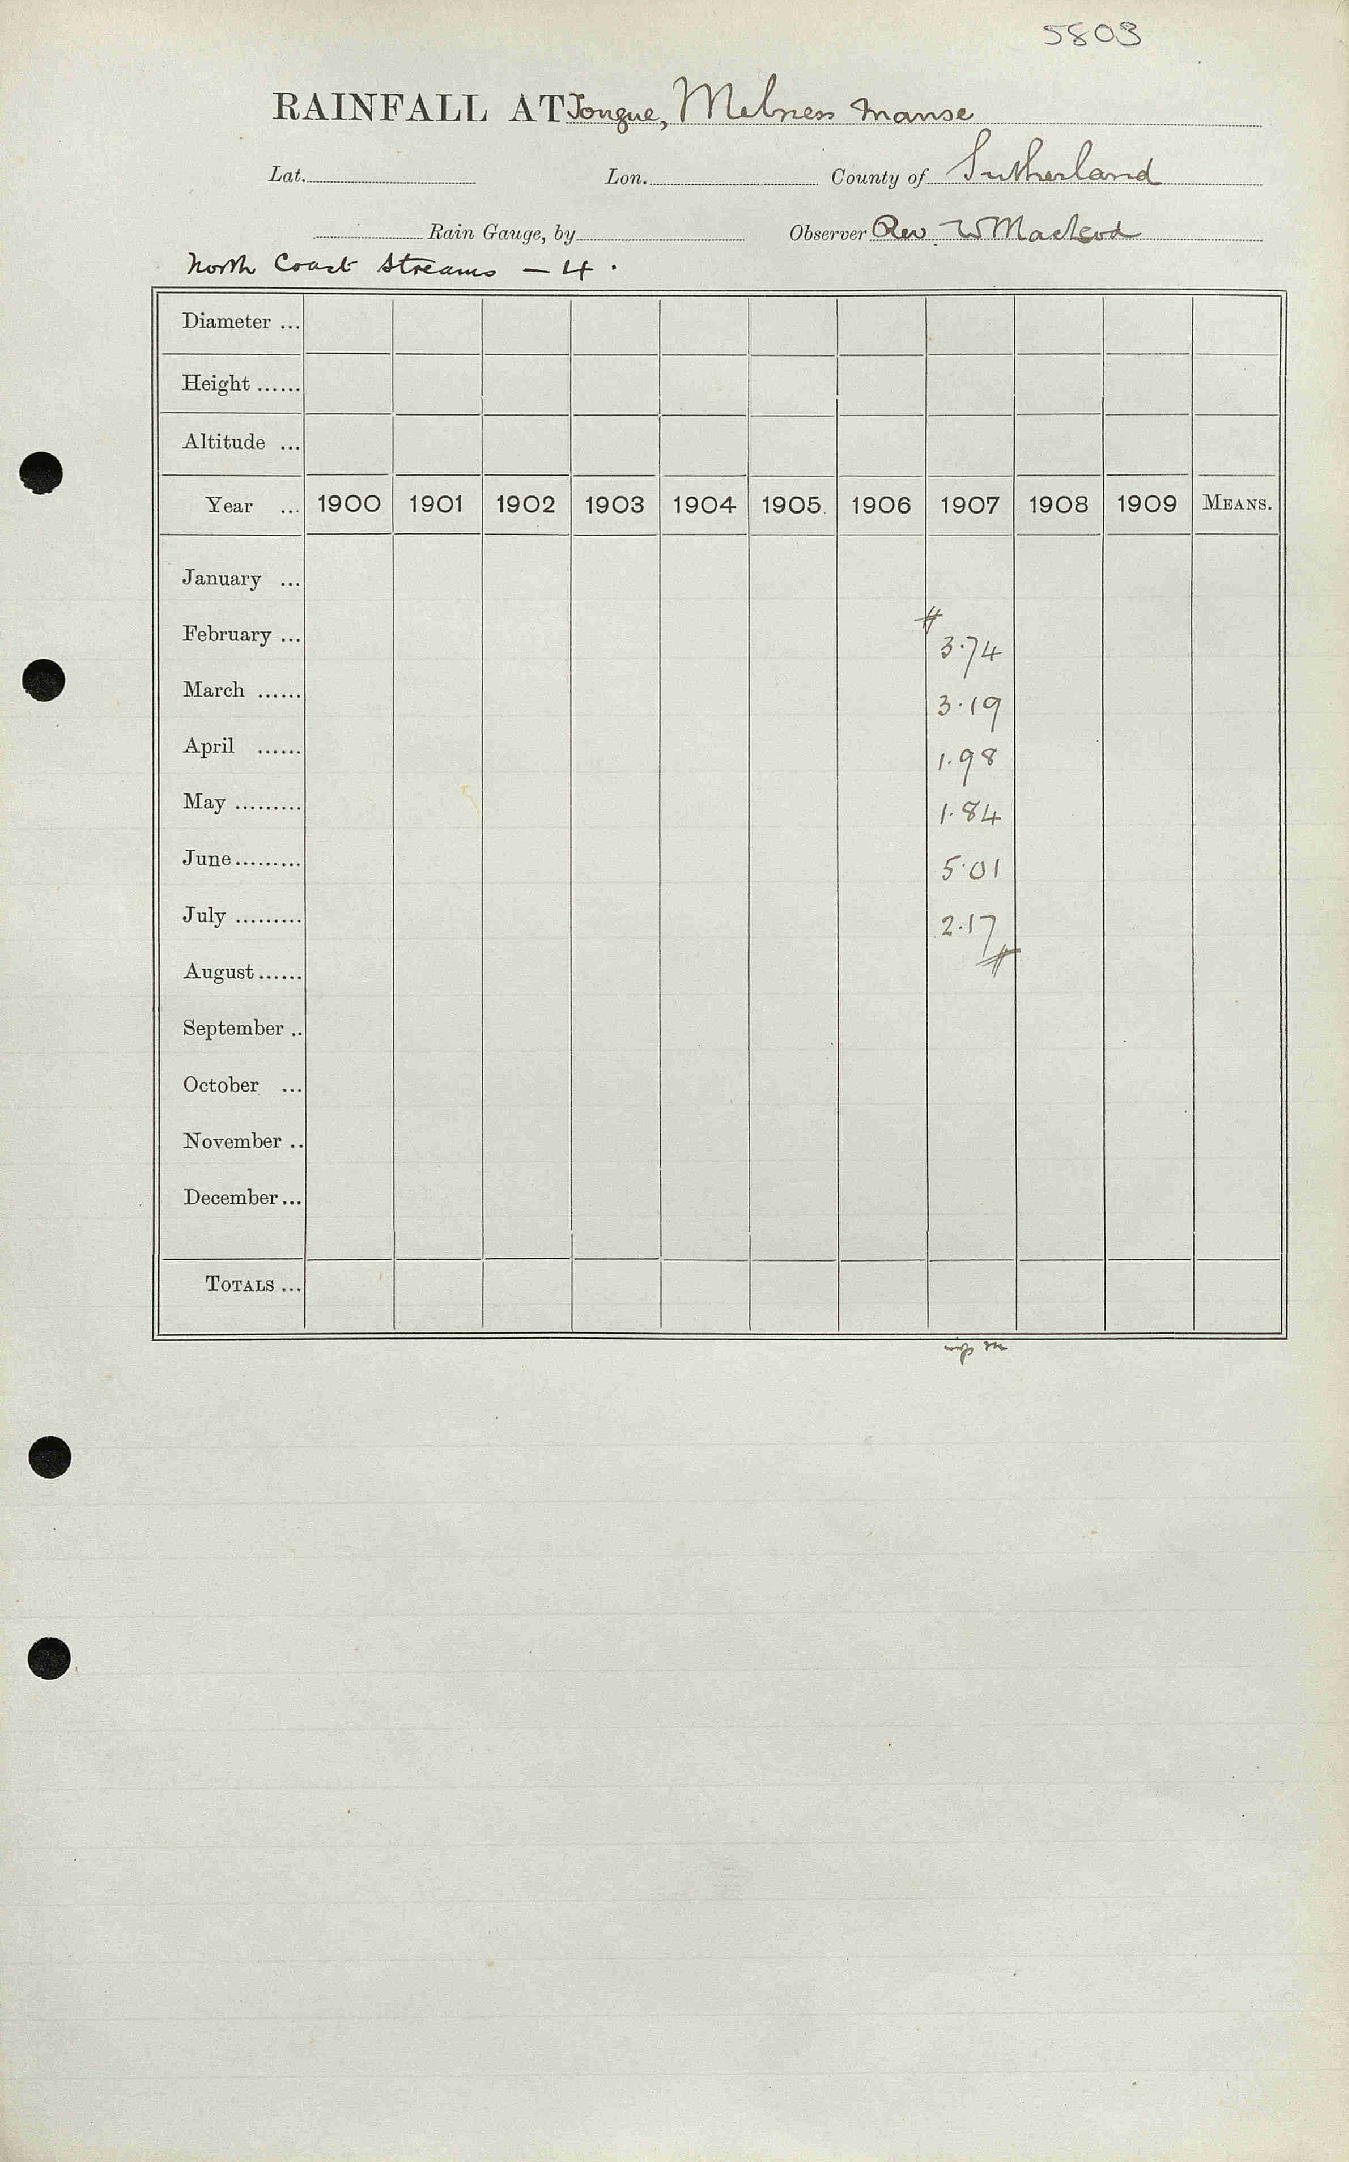 5803
RAINFALL AT Tongue, Melness Manse
Lat. Lon. County of Sutherland
Rain Gauge, by Observer Rev. W Macleod
North Coast Streams — 4.
Diameter ...
Height ......
Altitude ...
Year ... 1900 1901 1902 1903 1904 1905 1906 1907 1908 1909 MEANS.
January ...
February ... 3.74
March ...... 3.19
April ...... 1.98
May ......... 1.84
June ......... 5.01
July ......... 2.17
August ......
September ..
October ...
November ..
December ...
TOTALS ...